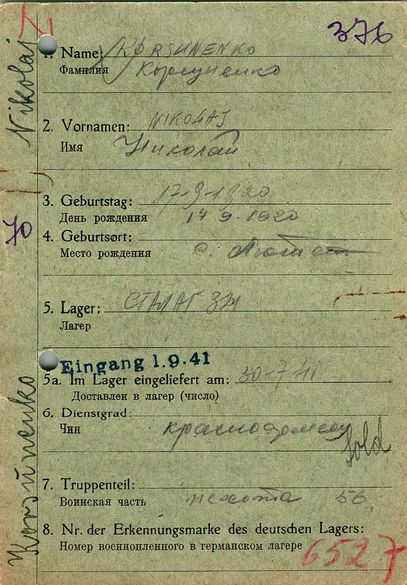 376
1. Name: KORSUNENKO
Фамилия Корсуненко
2. Vornamen: NIKOLAJ
Имя Николай
3. Geburtstag: 17-9-1920
День рождения 17 9. 1920
4. Geburtsort:
Место рождения с
5. Lager: СТАЛАГ
Лагер
Eingang 1.9.41
5a. Im Lager eingeliefert am: 30-7-41
Доставлен в лагер (число)
6. Dienstgrad:
Чин красноармеец
Sold
7. Truppenteil:
Воинская часть пехота 56
8. Nr. der Erkennungsmarke des deutschen Lagers:
Номер военнопленного в германском лагере
6527
Nikolaj
70
Korsunenko